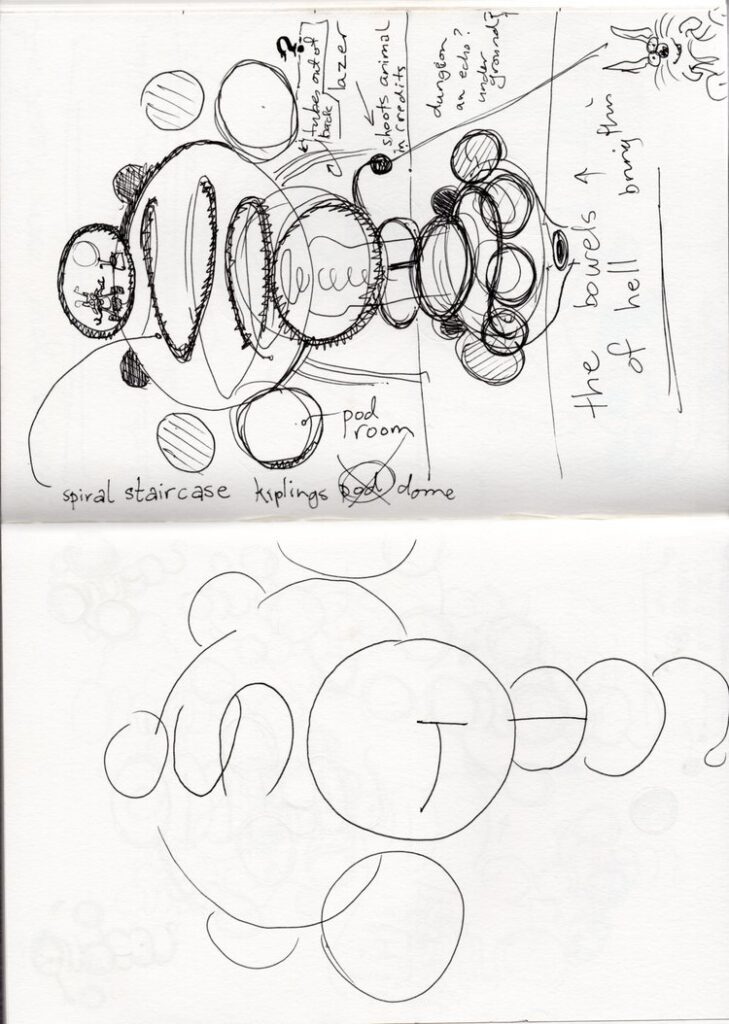 ?
tubes out of
back
lazer
shoots animal
in credits
dungeon
an echo?
under
ground?
the bowels
of hell bring this
pod
room
spiral staircase
kiplings pod dome